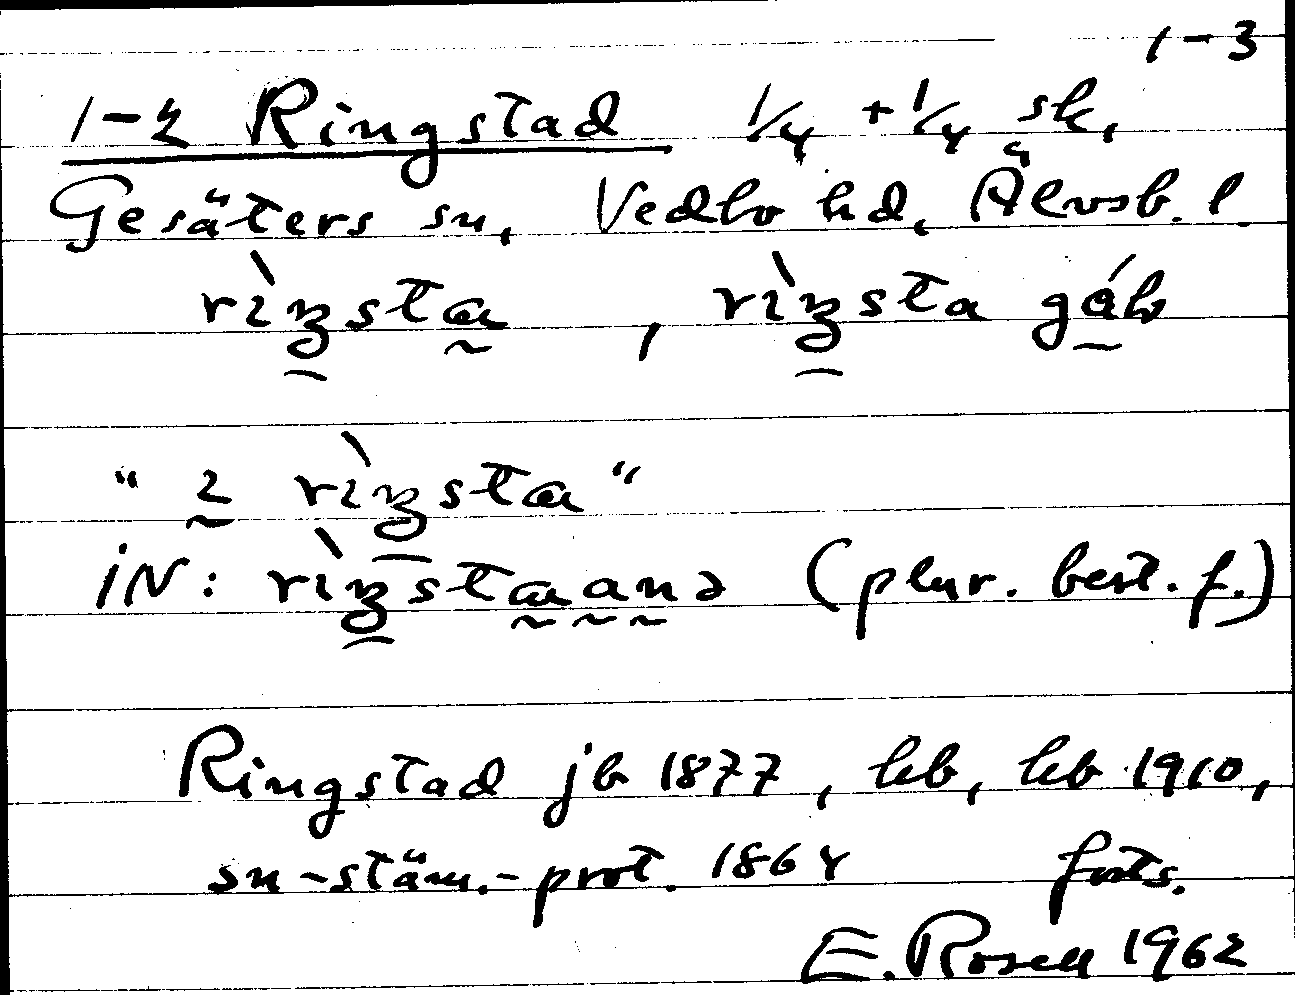 1-3
1-2 Ringstad 1/4 + 1/4 sk.
Gesäters sn, Vedbo hd, Älvsb. l.
rìŋsta, rìŋsta gáb
"2 rìŋsta"
iN: rìŋstaanə (plur. best. f.)
Ringstad jb 1877, kb, kb 1910,
sn-stäm.-prot. 1864 forts.
E. Rosell 1962